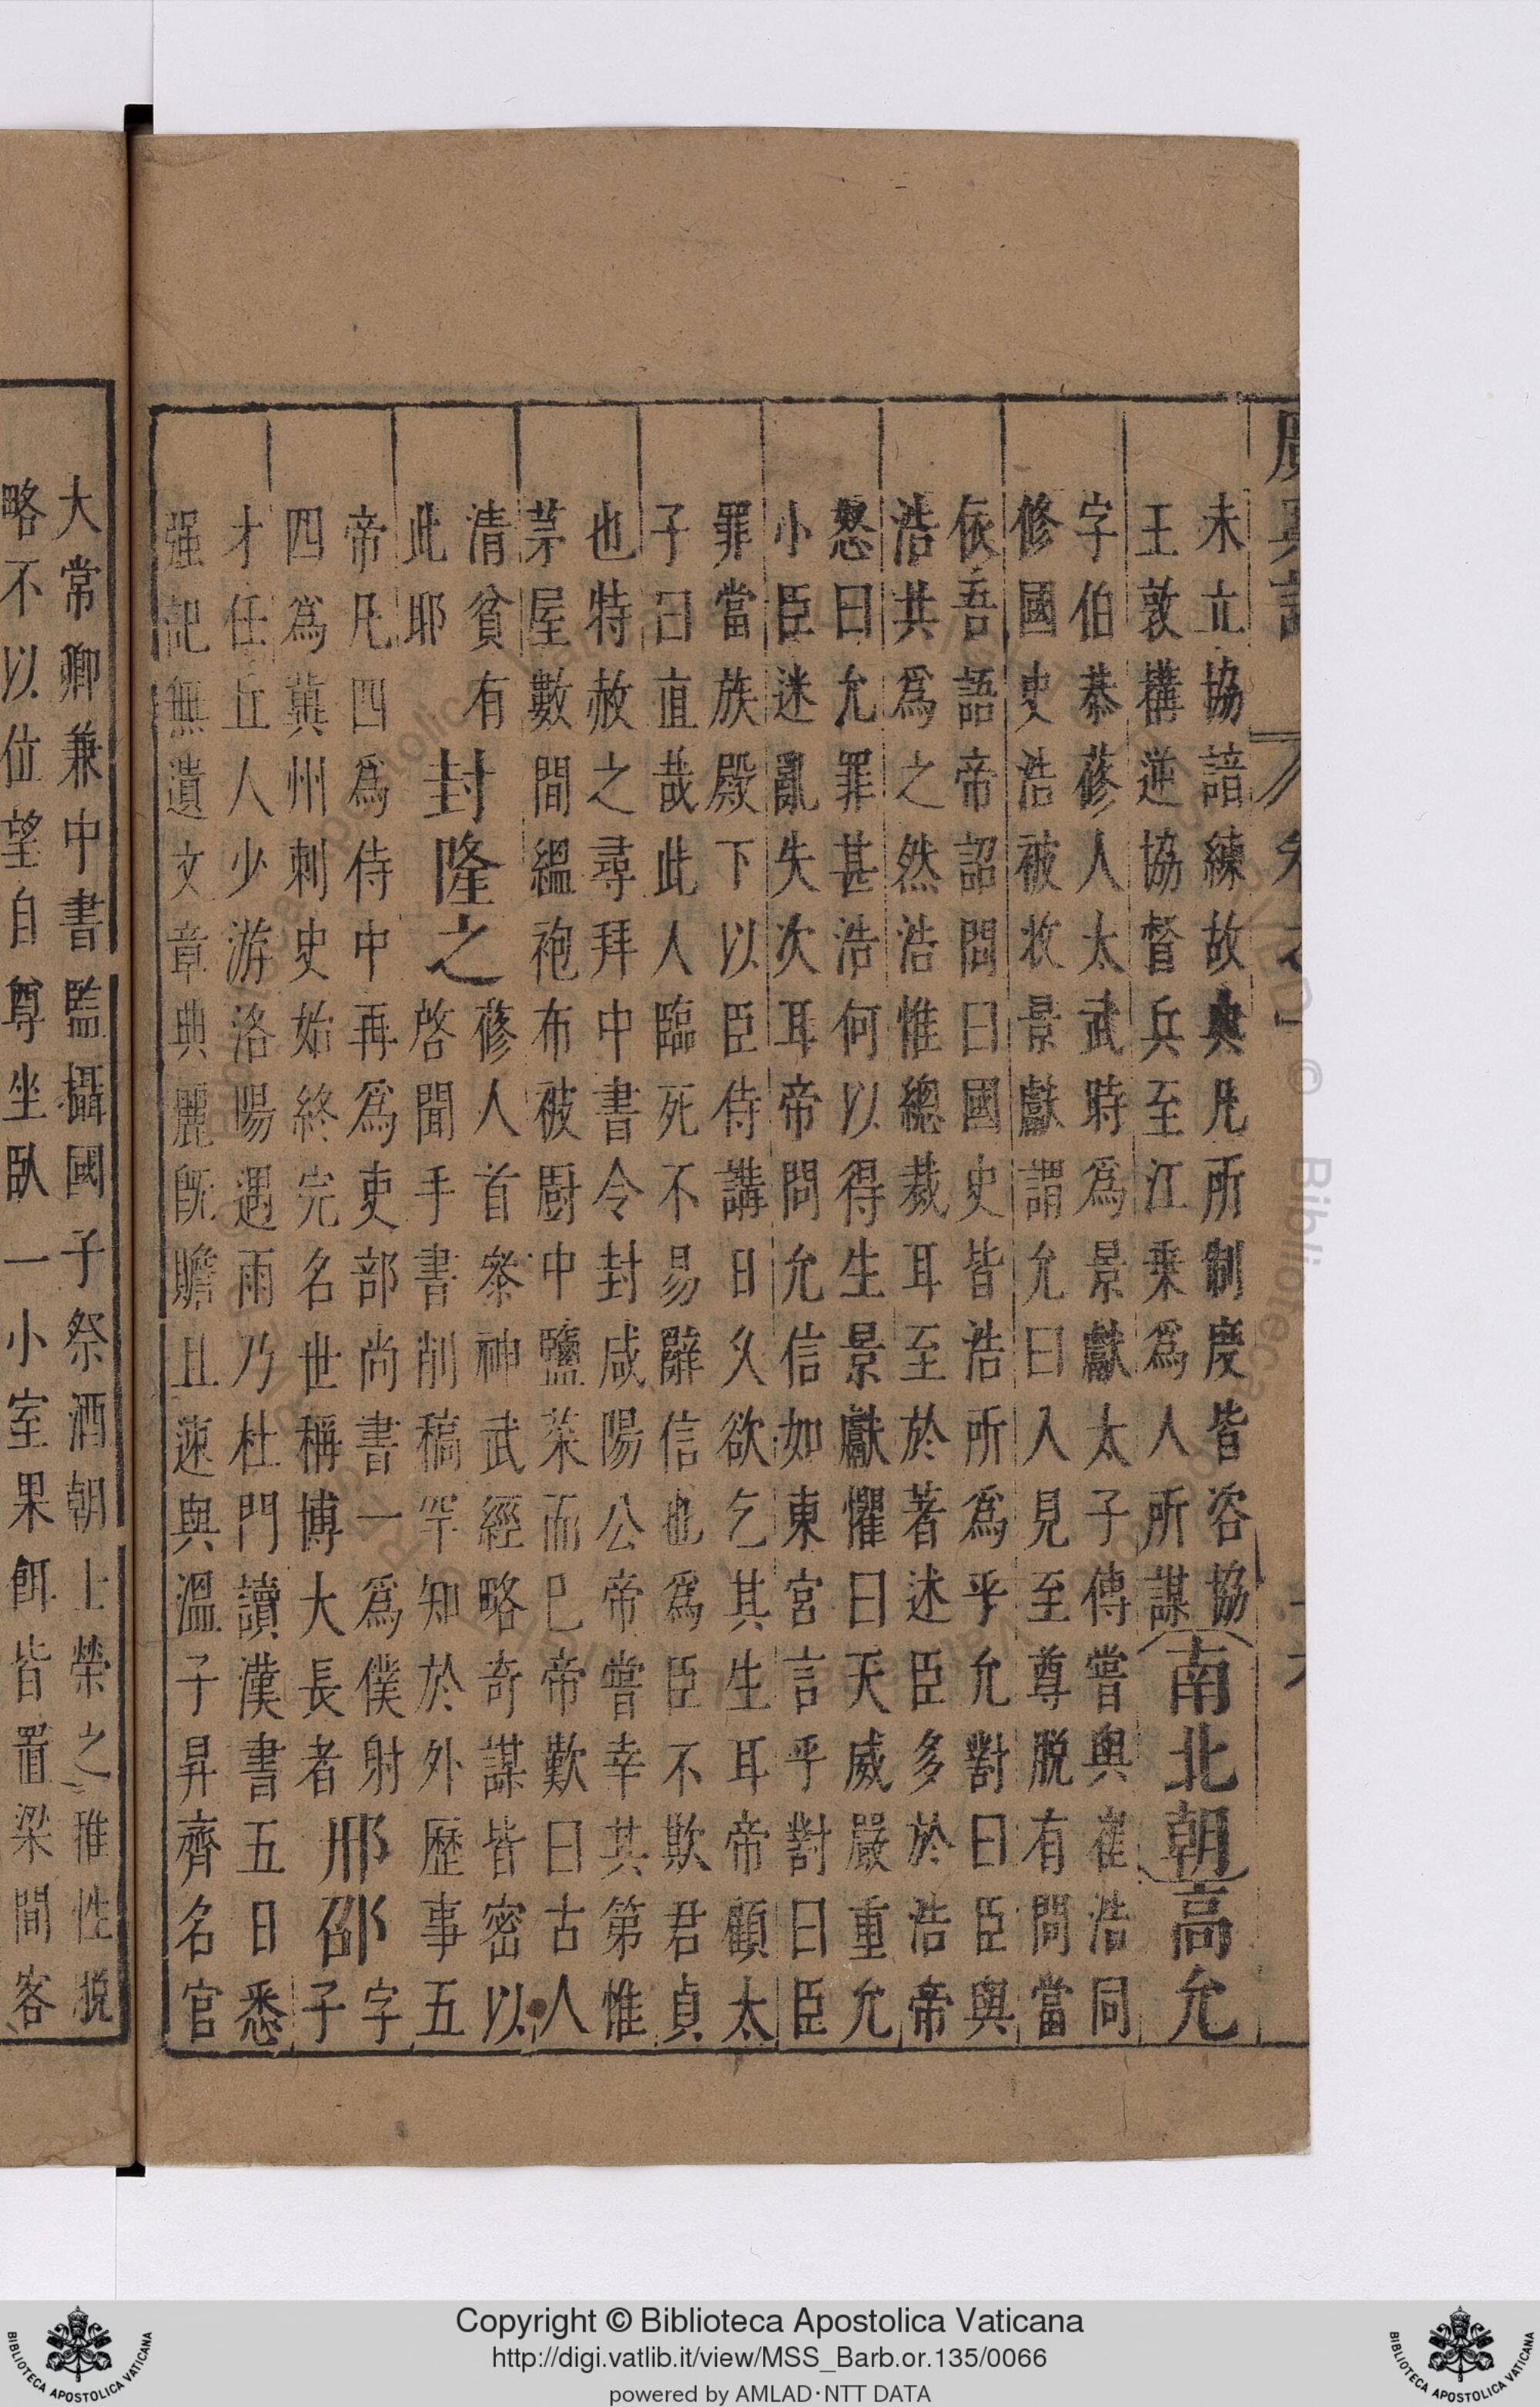 未立協諳練故典凡所制度皆咨協
王敦搆逆協督兵至江乗爲人所謀
南北朝
高允
字伯恭蓚人太武時爲景獻太子傅嘗與崔浩同
修國史浩被收景獻謂允曰入見至尊脫有問當
依吾語帝詔問曰國史皆浩所爲乎允對曰臣與
浩共爲之然浩惟總裁耳至於著述臣多於浩帝
怒曰允罪甚浩何以得生景獻懼曰天威嚴重允
小臣迷亂失次耳帝問允信如東宮言乎對曰臣
罪當族殿下以臣侍講日久欲乞其生耳帝顧太
子曰直哉此人臨死不易辭信也爲臣不欺君貞
也特赦之尋拜中書令封咸陽公帝嘗幸其第惟
茅屋數間縕袍布被厨中鹽菜而已帝歎曰古人
清貧有
此耶
封隆之
蓚人首叅神武經略奇謀皆密以
啓聞手書削稿罕知於外歷事五
帝凡四爲侍中再爲吏部尚書一爲僕射
四爲冀州刺史始終完名世稱博大長者
邢邵
字
子
才任丘人少游洛陽遇雨乃杜門讀漢書五日悉
强記無遺文章典麗旣贍且速與溫子昇齊名官
大常卿兼中書監攝國子祭酒朝上榮之雅性脫
略不以位望自尊坐臥一小室果餌皆置梁間客
Copyright © Biblioteca Apostolica Vaticana
http://digi.vatlib.it/view/MSS_Barb.or.135/0066
powered by AMLAD·NTT DATA
BIBLIOTECA APOSTOLICA VATICANA
BIBLIOTECA APOSTOLICA VATICANA